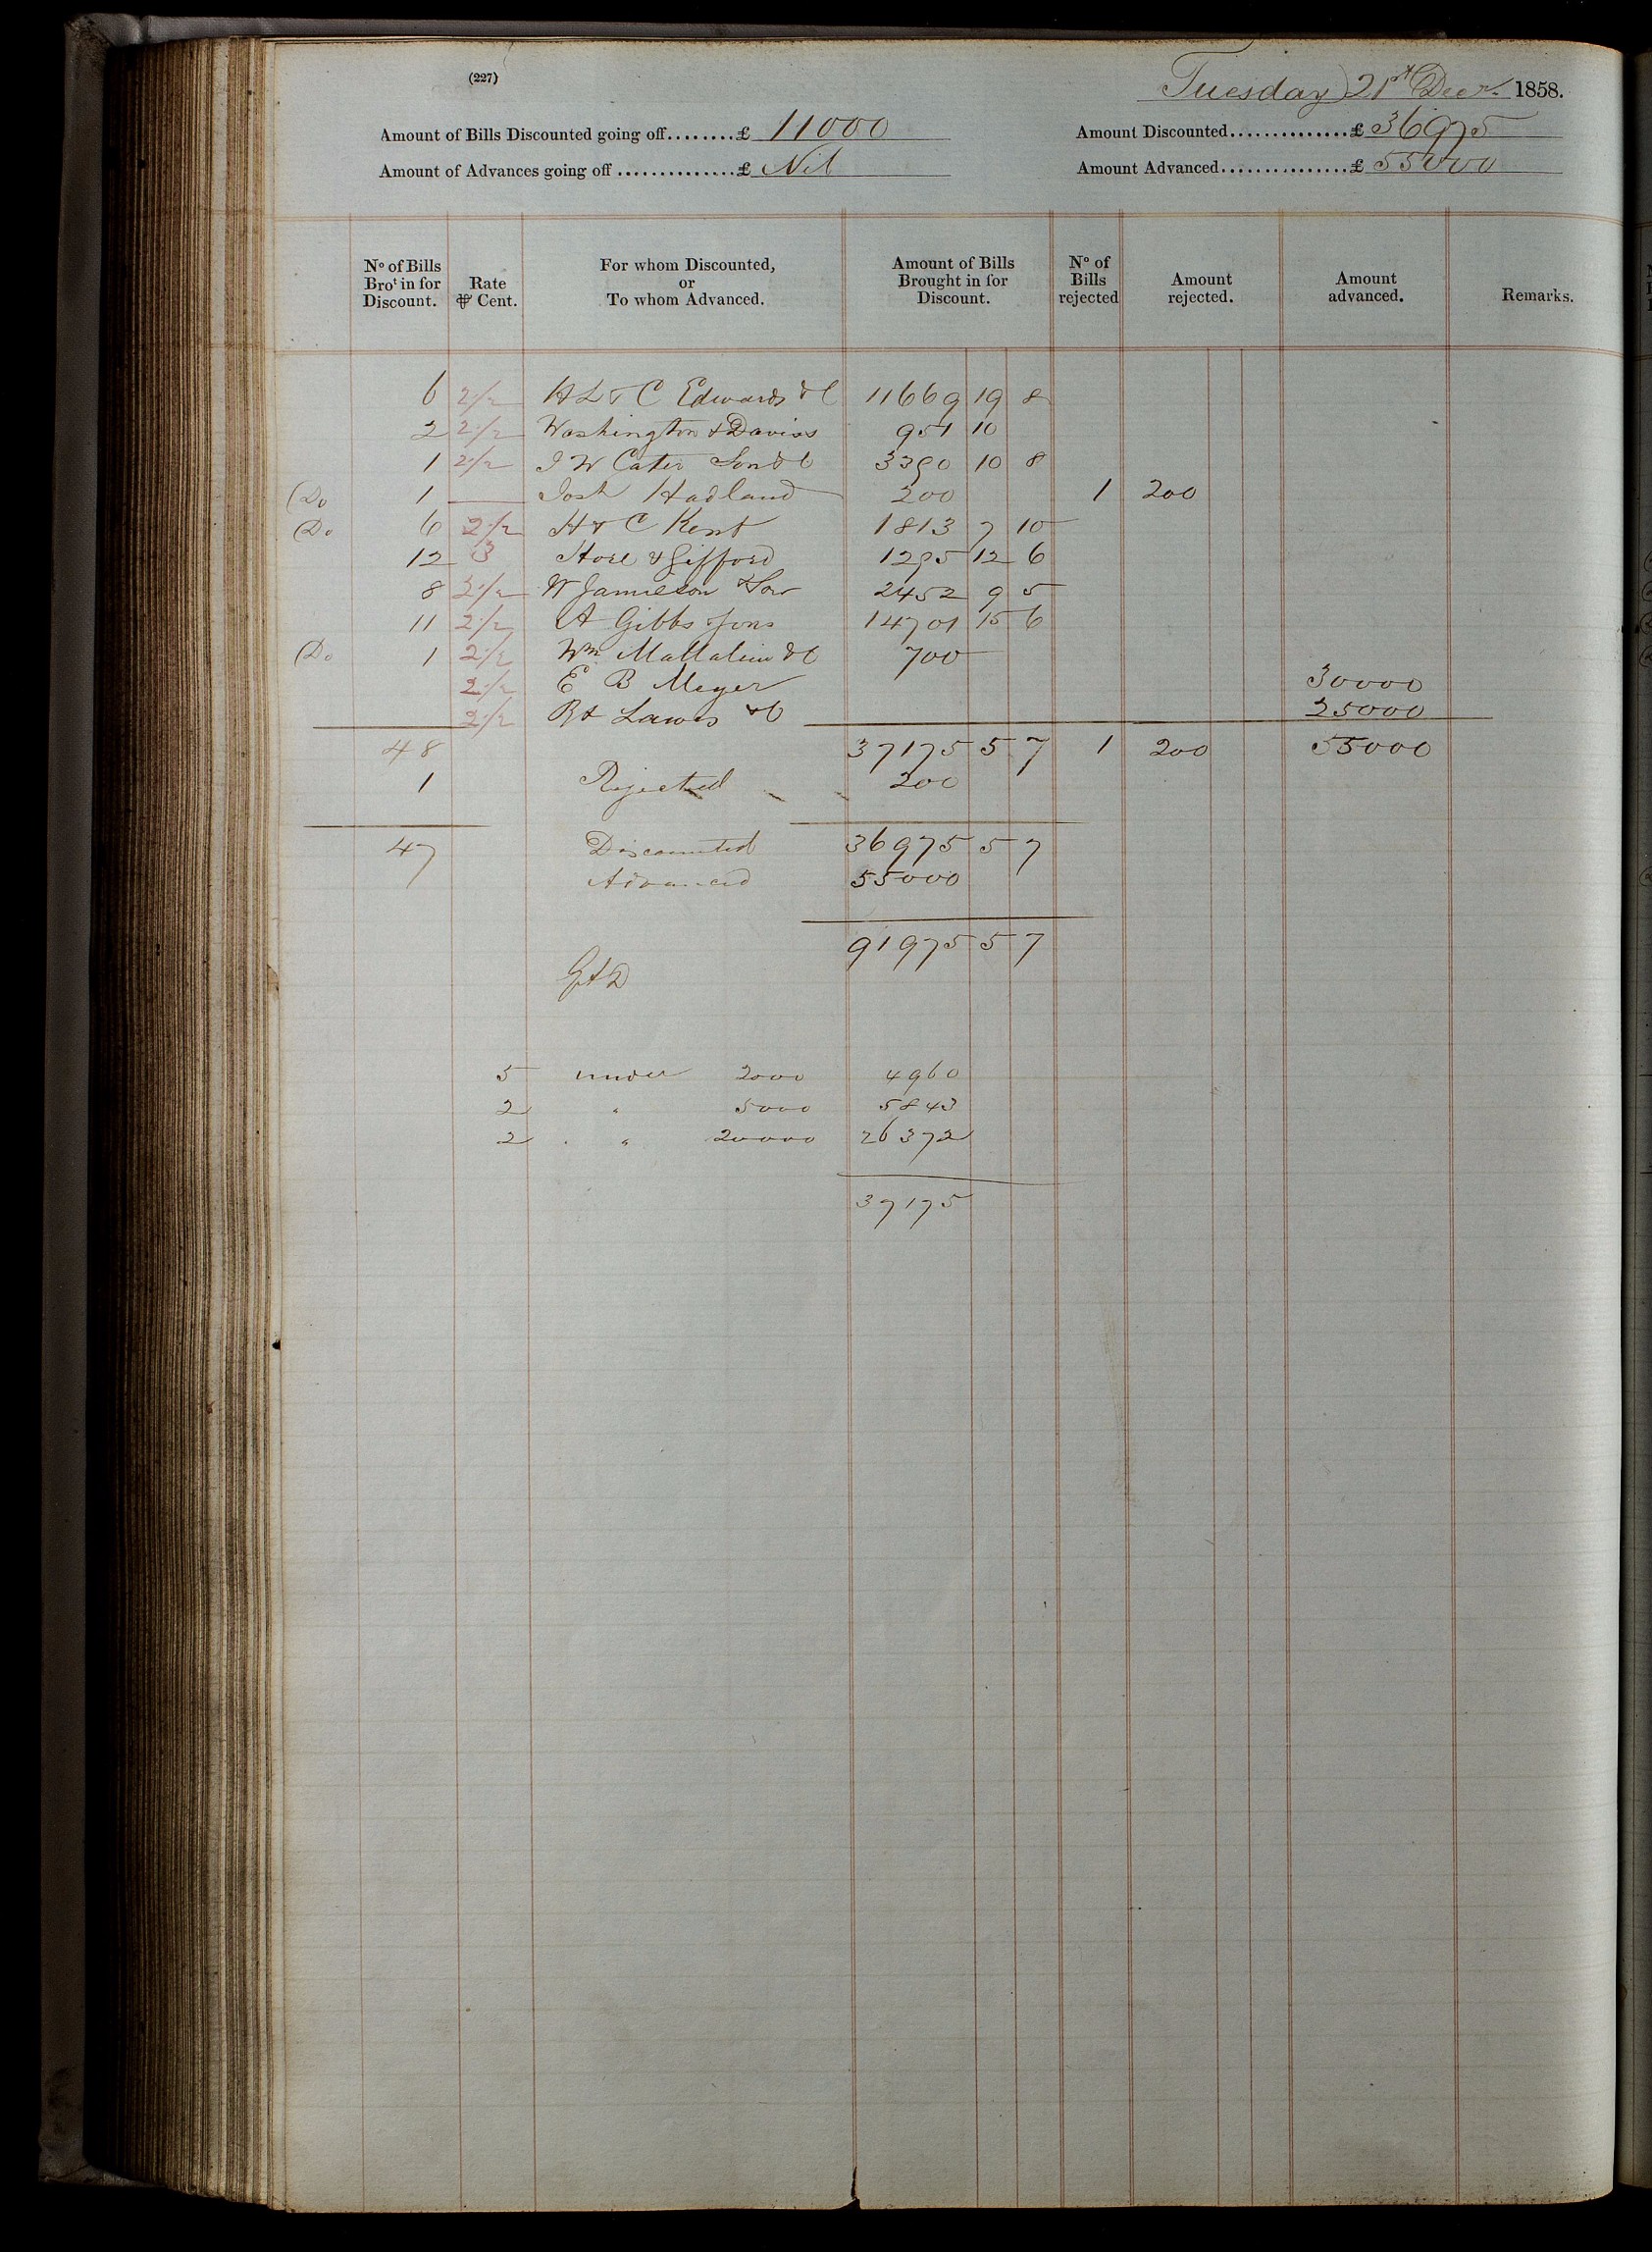 (227)
Tuesday 21st Decr. 1858.
Amount of Bills Discounted going off........£ 11000 Amount Discounted..............£ 36975
Amount of Advances going off ..............£ Nil Amount Advanced...............£ 55000
No of Bills Brot in for Discount. Rate ⅌ Cent. For whom Discounted, or To whom Advanced. Amount of Bills Brought in for Discount. No of Bills rejected Amount rejected. Amount advanced. Remarks.
6 2½ H L & C Edwards & C 11669 19 8
2 2½ Washington & Daviss 951 10
1 2½ J W Cater Son & C 3390 10 8
(Do 1 — Josh Hadland 200 1 200
(Do 6 2½ H & C Kent 1813 7 10
12 3 Hoare & Gifford 1295 12 6
8 2½ W Jamieson & Son 2452 9 5
11 2½ A Gibbs Sons 14701 15 6
(Do 1 2½ Wm Mallalieu & C 700
2½ E B Meyer 30000
2½ Rt Lawes & C 25000
48 37175 5 7 1 200 55000
1 Rejected 200
47 Discounted 36975 5 7
Advanced 55000
91975 5 7
5 under 2000 4960
2 " 5000 5843
2 " 20000 26372
37175